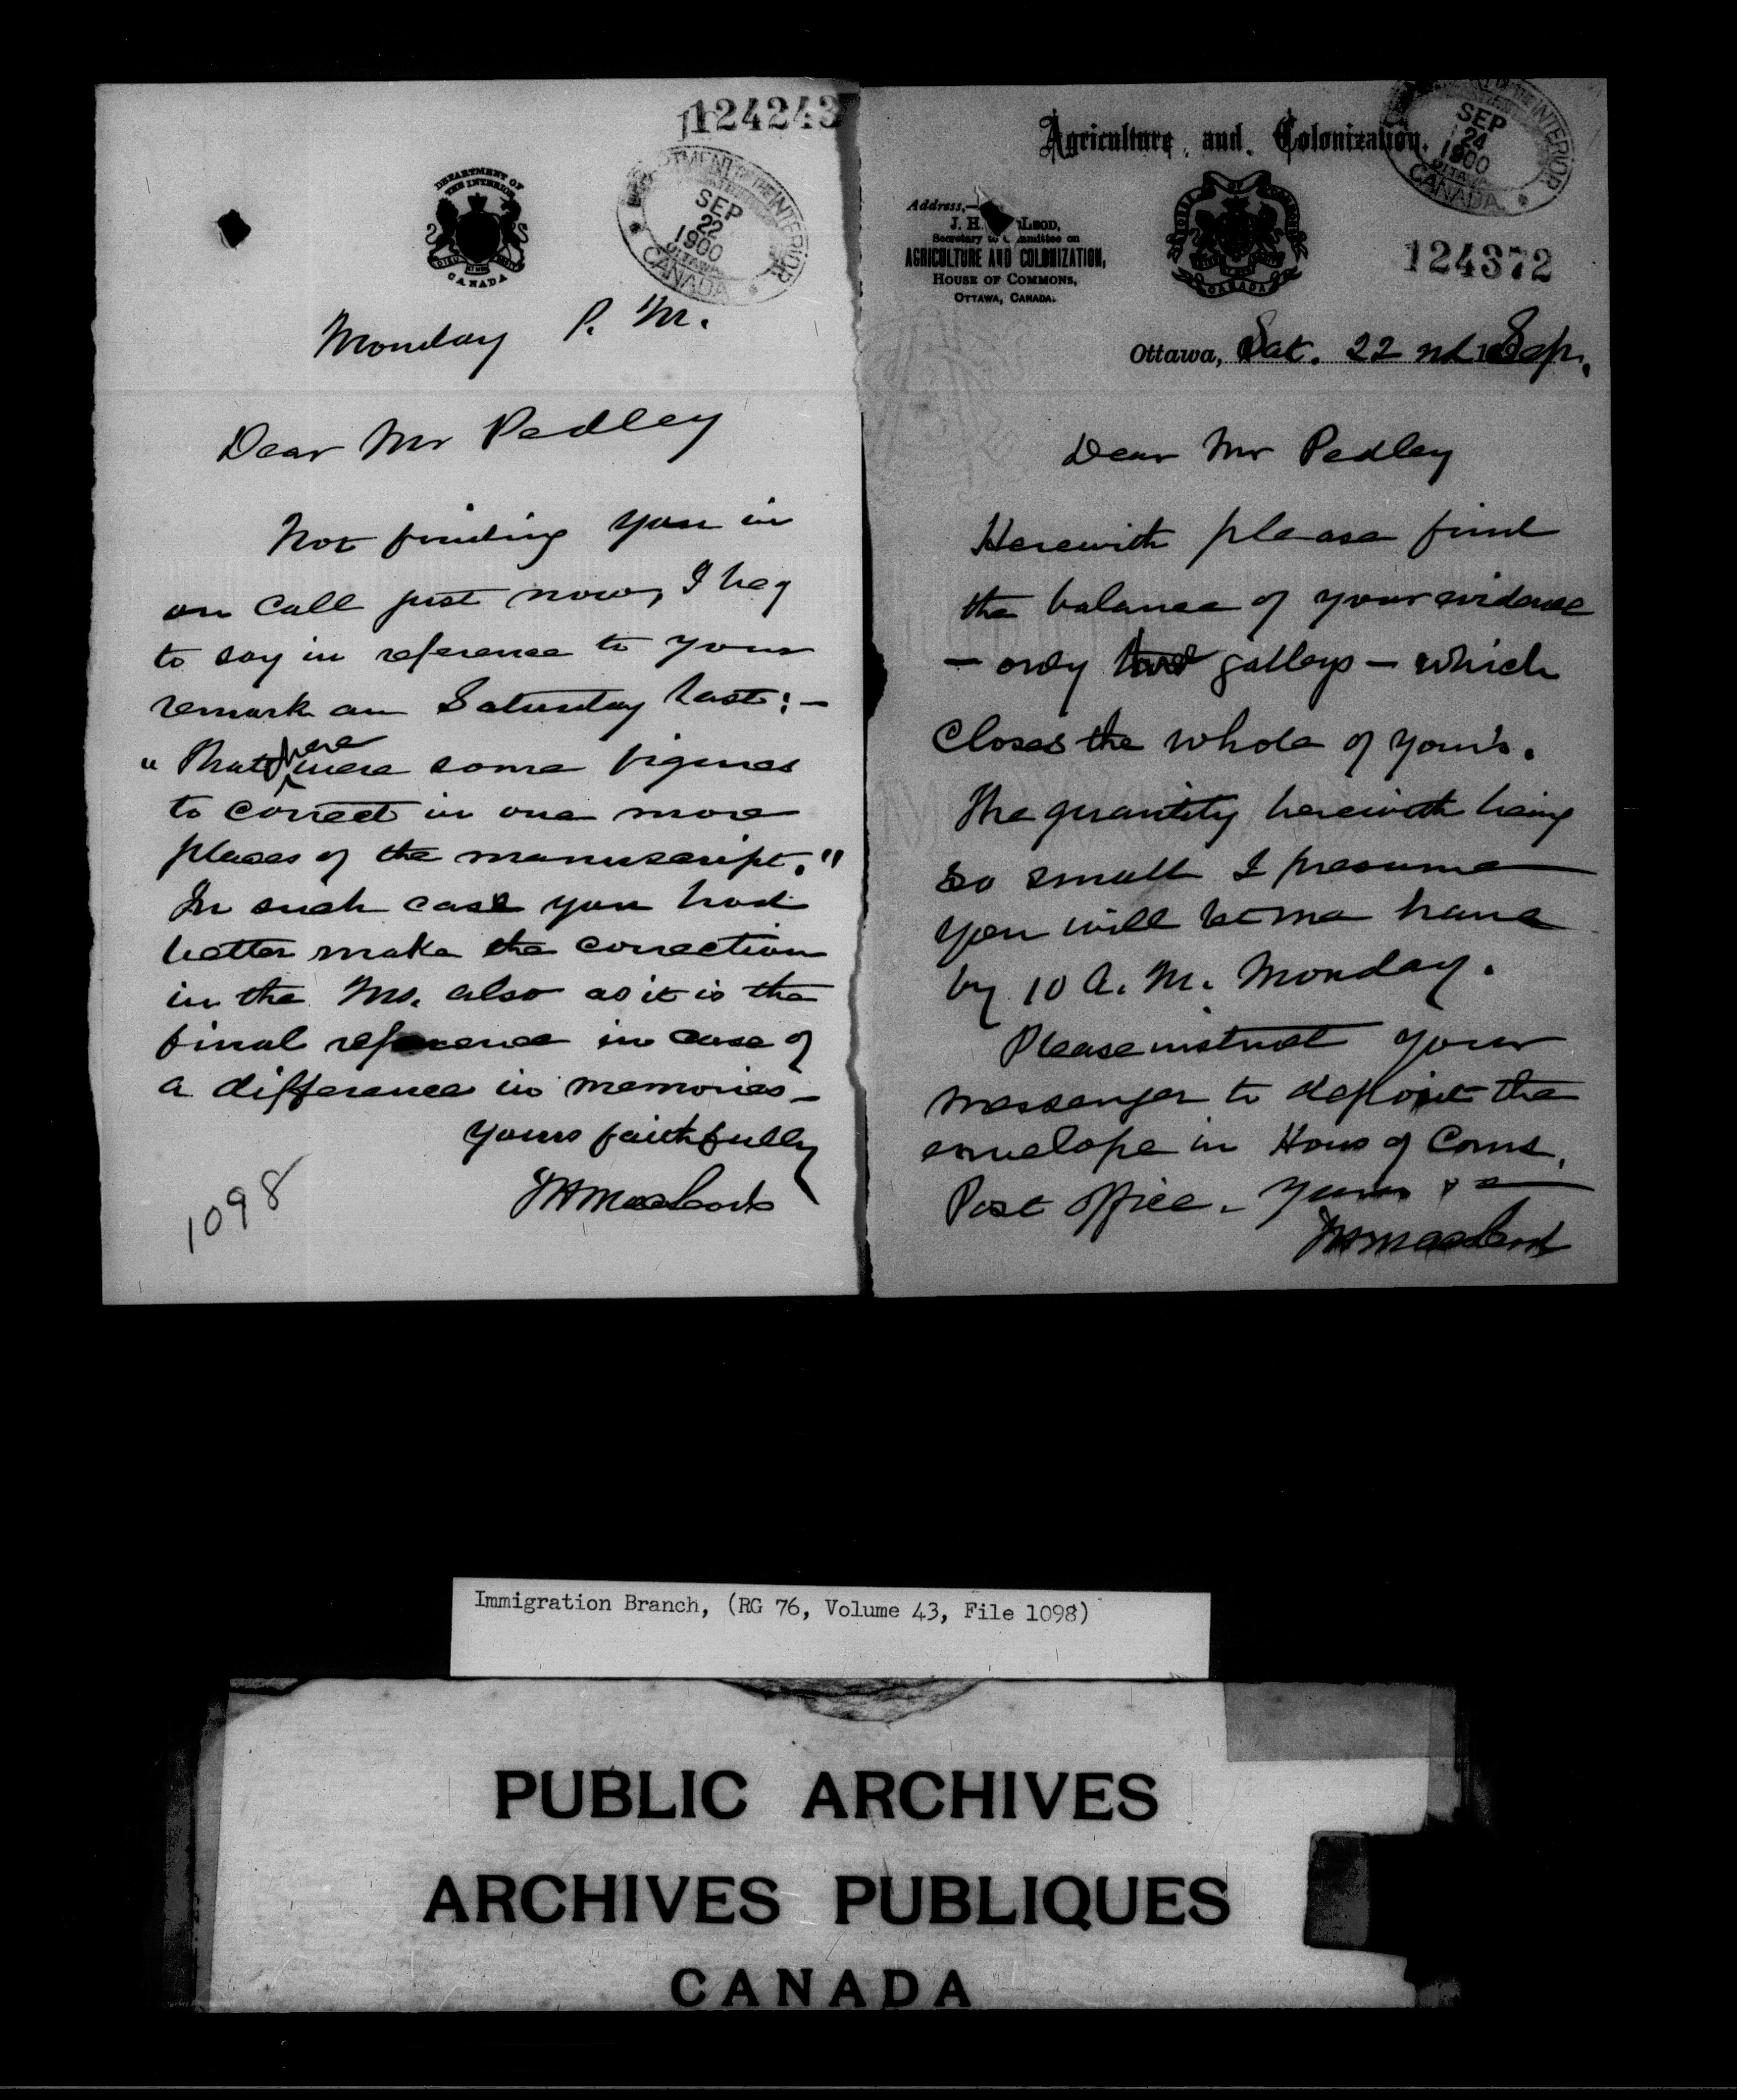 124243
DEPARTMENT OF
THE INTERIOR
DIEU ET MON DROIT
CANADA
DEPARTMENT OF THE INTERIOR
SEP
22
1900
OTTAWA
CANADA
Monday P. M.
Dear Mr Pedley
Not finding you in
on call just now, I beg
to say in reference to your
remark on Saturday last:—
"That there were some figures
to correct in one more
places of the manuscript."
In such case you had
better make the correction
in the Ms. also as it is the
final reference in case of
a difference in memories—
Yours faithfully
JH MacLeod
1098
Agriculture and Colonization.
THE INTERIOR
SEP
24
1900
OTTAWA
CANADA
Address,—
J. H. LEOD,
Secretary to Committee on
AGRICULTURE AND COLONIZATION,
HOUSE OF COMMONS,
OTTAWA, CANADA.
CANADA
124372
Ottawa, Sat. 22nd Sep.
Dear Mr Pedley
Herewith please find
the balance of your evidence
— only two galleys — which
closes the whole of your's.
The quantity herewith being
so small I presume
you will let me have
by 10 A. M. Monday.
Please instruct your
messenger to deposit the
envelope in Hous of Coms.
Post Office. Yours &c
JH MacLeod
Immigration Branch, (RG 76, Volume 43, File 1098)
PUBLIC ARCHIVES
ARCHIVES PUBLIQUES
CANADA